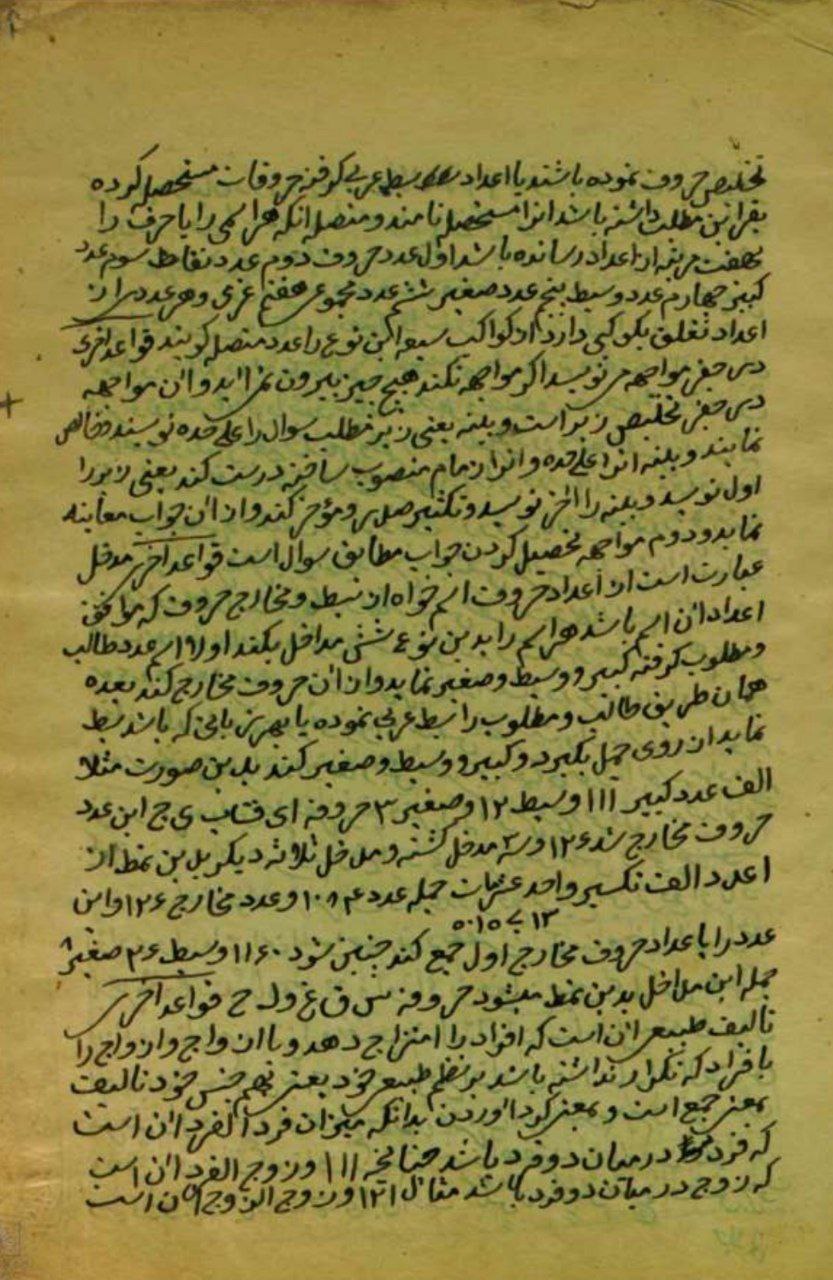 تخلیص حروف نموده باشند یا اعداد بسط عربی کرفته حروفات مستحصل کرده
بقراین مطلب داشته باشد انرا مستحصله نامند و متصله انکه هر اسمی را یا حرف را
بهفت مرتبه از اعداد رسانده باشد اول عدد حروف دوم عدد نقاط سوم عدد
کبیر چهارم عدد وسیط پنجم عدد صغیر ششم عدد مجموعی هفتم عزی و هر عددی از
اعداد تعلق بکوکبی دارد از کواکب سبعه این نوع را عدد متصله کویند قواعد اخری
در جفر مواجهه می نویسد اکر مواجهه نکند هیچ چیز بیرون نمی اید و ان مواجهه
در جفر تخلیص زبر است و بینه یعنی زبر مطلب سوال را علی حده نویسند و خالص
نمایند و بینه انرا علی حده و انرا زمام منصوب ساخته درست کند یعنی زبر را
اول نویسد و بینه را اخر نویسد و تکثیر صدر و مؤخر کند و از ان جواب معاینه
نماید و دوم مواجهه تحصیل کردن جواب مطابق سوال است قواعد اخری مدخل
عبارت است از اعداد حروف اسم خواه از بسط و مخارج حروف که موافق
اعداد ان اسم باشد هر اسم را بدین نوع شش مداخل بکند اولا اسم عدد طالب
و مطلوب کرفته کبیر و وسیط و صغیر نماید و از ان حروف مخارج کند بعده
همان طریق طالب و مطلوب را بسط عربی نموده یا بهر زبانی که باشد بسط
نماید از روی جمل بکیرد و کبیر و وسیط و صغیر کند بدین صورت مثلا
الف عدد کبیر ۱۱۱ وسیط ۱۲ و صغیر ۳ حروفه ای ق ب ی ج این عدد
حروف مخارج شد ۱۲۶ و سه مدخل کشته و مدخل ثلاثه دیکر بدین نمط از
اعداد الف تکسیر واحد عشر مات جمله عدد ۱۰۳۴ و عدد مخارج ۱۲۶ و این
۱۳
عدد را با عداد حروف مخارج اول جمع کند چنین شود ۱۱۶۰ وسیط ۲۶ صغیر ۸
جمله این مداخل بدین نمط میشود حروفه س ق غ و ل ح قواعد اخری
تالیف طبیعی ان است که افراد را امتزاج دهد و با ازواج و ازواج را
با فراد که تکرار نداشته باشد بر نظم طبیعی خود یعنی بهم جنس خود تالیف
بمعنی جمع است و بمعنی کرد اوردن بدانکه میزان فرد الفرد ان است
که فرد در میان دو فرد باشد چنانچه ۱۱۱ و زوج الفرد ان است
که زوج در میان دو فرد باشد مثال ۱۲۱ و زوج الزوج ان است